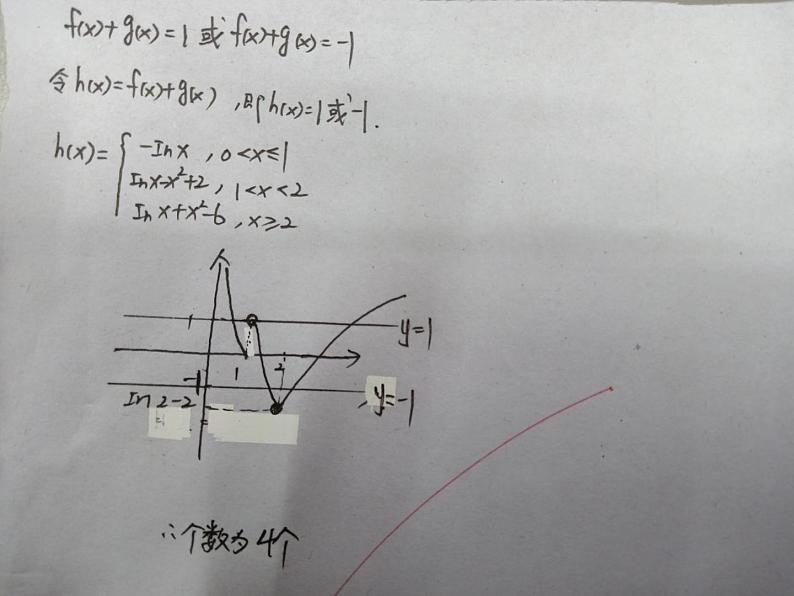 f(x)+g(x)=1 或 f(x)+g(x)=-1
令h(x)=f(x)+g(x) ,即h(x)=1或-1.
h(x)= { -lnx , 0<x≤1
lnx-x²+2 , 1<x<2
lnx+x²-6 , x≥2
1
y=1
1
2
-1
ln2-2
y=-1
∴个数为4个